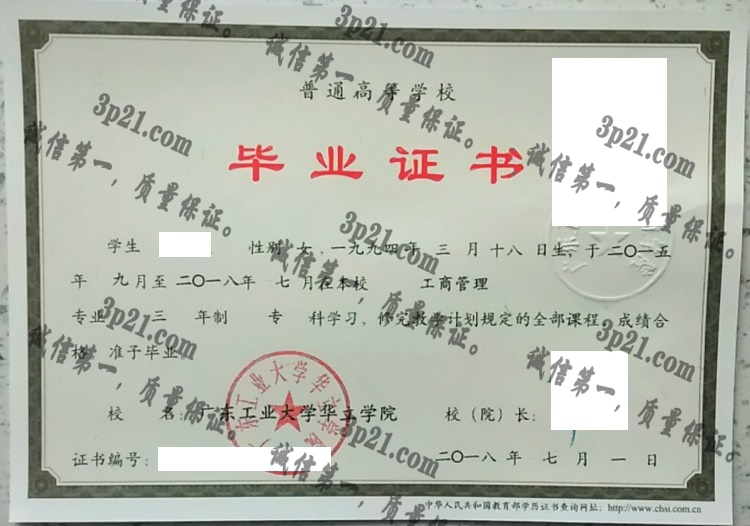 普通高等学校
毕业证书
学生 性别 女，一九九四年 三 月十八 日生，于二〇一五
年 九月至二〇一八年 七 月在本校 工商管理
专业 三 年制 专 科学习，修完教学计划规定的全部课程，成绩合
格，准予毕业
校 名：广东工业大学华立学院 校（院）长：
证书编号： 二〇一八 年 七 月 一 日
中华人民共和国教育部学历证书查询网址：http://www.chsi.com.cn
广东工业大学华立学院
3p21.com
诚信第一，质量保证。
3p21.com
诚信第一，质量保证。
3p21.com
诚信第一，质量保证。
3p21.com
诚信第一，质量保证。
3p21.com
诚信第一，质量保证。
3p21.com
诚信第一，质量保证。
3p21.com
诚信第一，质量保证。
3p21.com
诚信第一，质量保证。